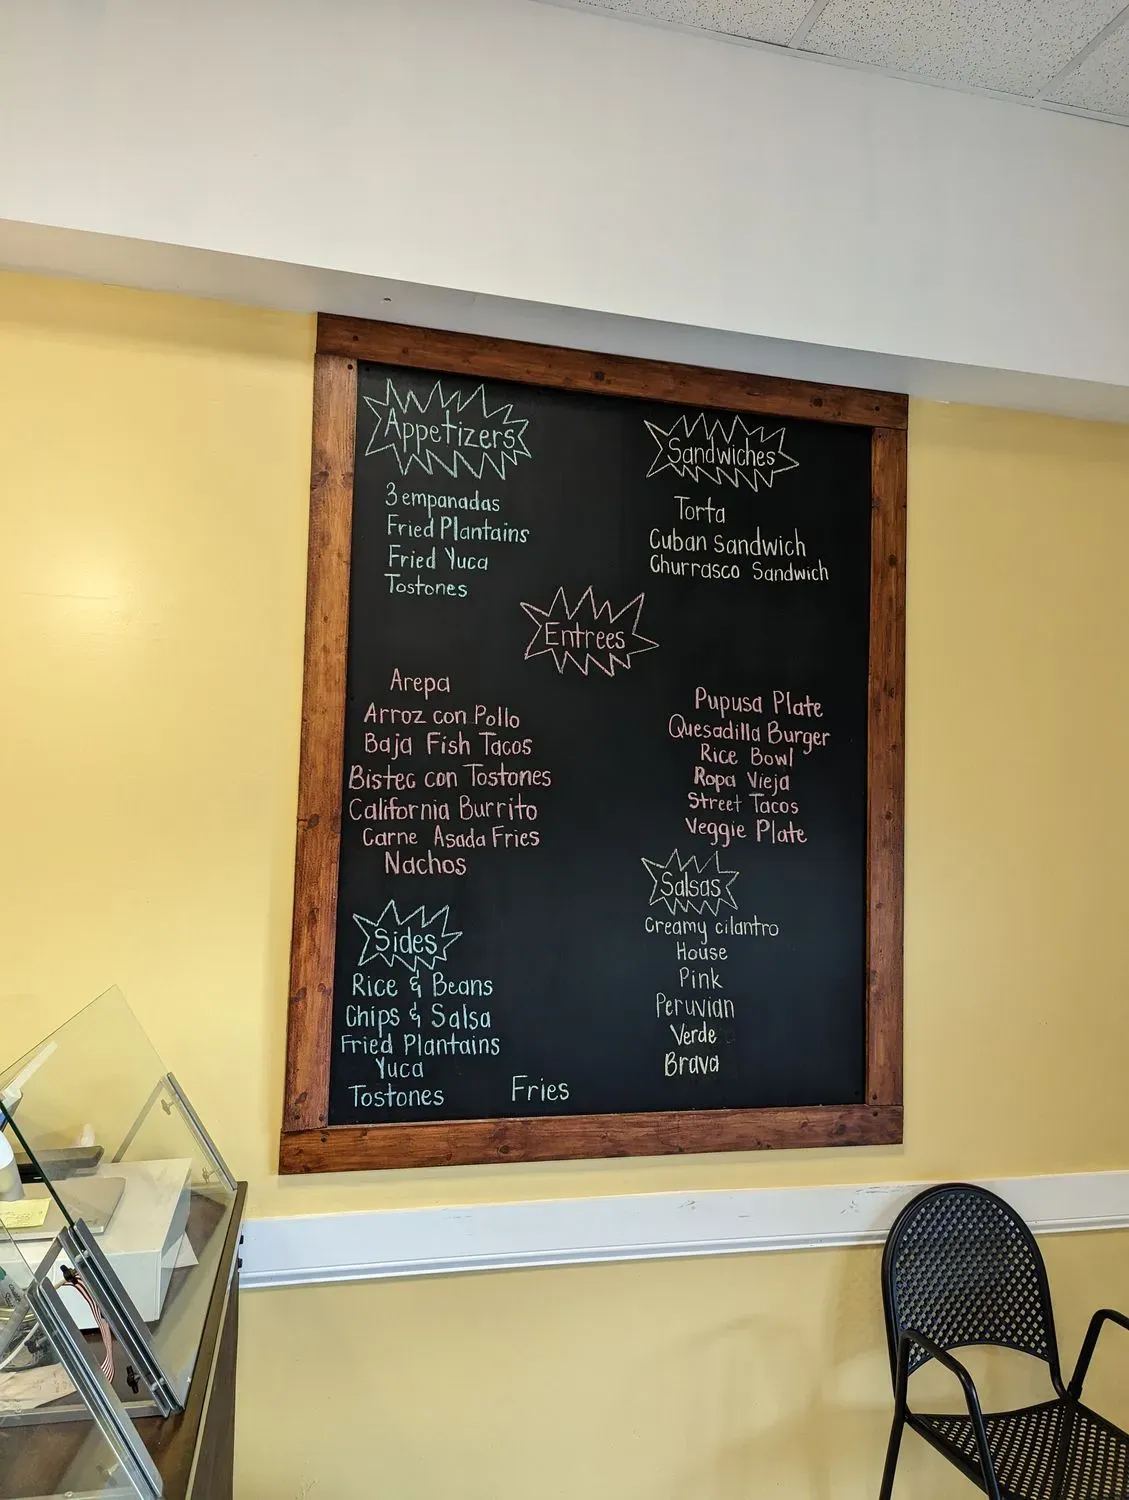 Appetizers
3 empanadas
Fried Plantains
Fried Yuca
Tostones
Sandwiches
Torta
Cuban Sandwich
Churrasco Sandwich
Entrees
Arepa
Arroz con Pollo
Baja Fish Tacos
Bistec con Tostones
California Burrito
Carne Asada Fries
Nachos
Pupusa Plate
Quesadilla Burger
Rice Bowl
Ropa Vieja
Street Tacos
Veggie Plate
Sides
Rice & Beans
Chips & Salsa
Fried Plantains
Yuca
Tostones
Fries
Salsas
Creamy cilantro
House
Pink
Peruvian
Verde
Brava